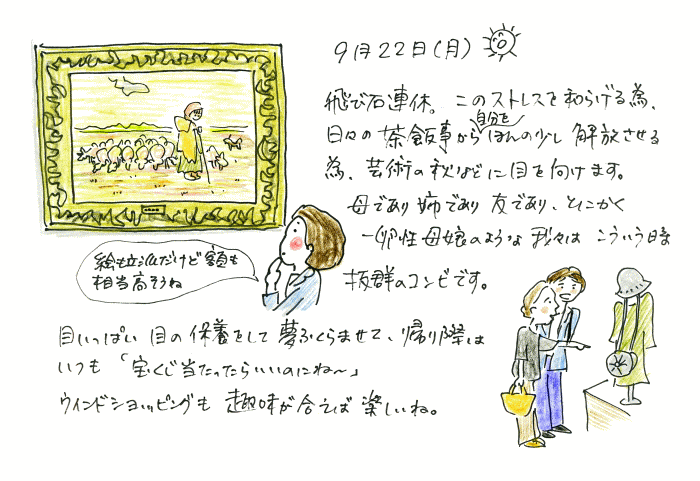 9月22日(月)
飛び石連休。このストレスを和らげる為、
日々の茶飯事から自分をほんの少し解放させる
為、芸術の秋などに目を向けます。
母であり姉であり友であり、とにかく
一卵性母娘のような我々はこういう時
抜群のコンビです。
絵も立派だけど額も
相当高そうね
目いっぱい目の保養をして夢ふくらませて、帰り際は
いつも「宝くじ当たったらいいのにね〜」
ウィンドショッピングも趣味が合えば楽しいね。